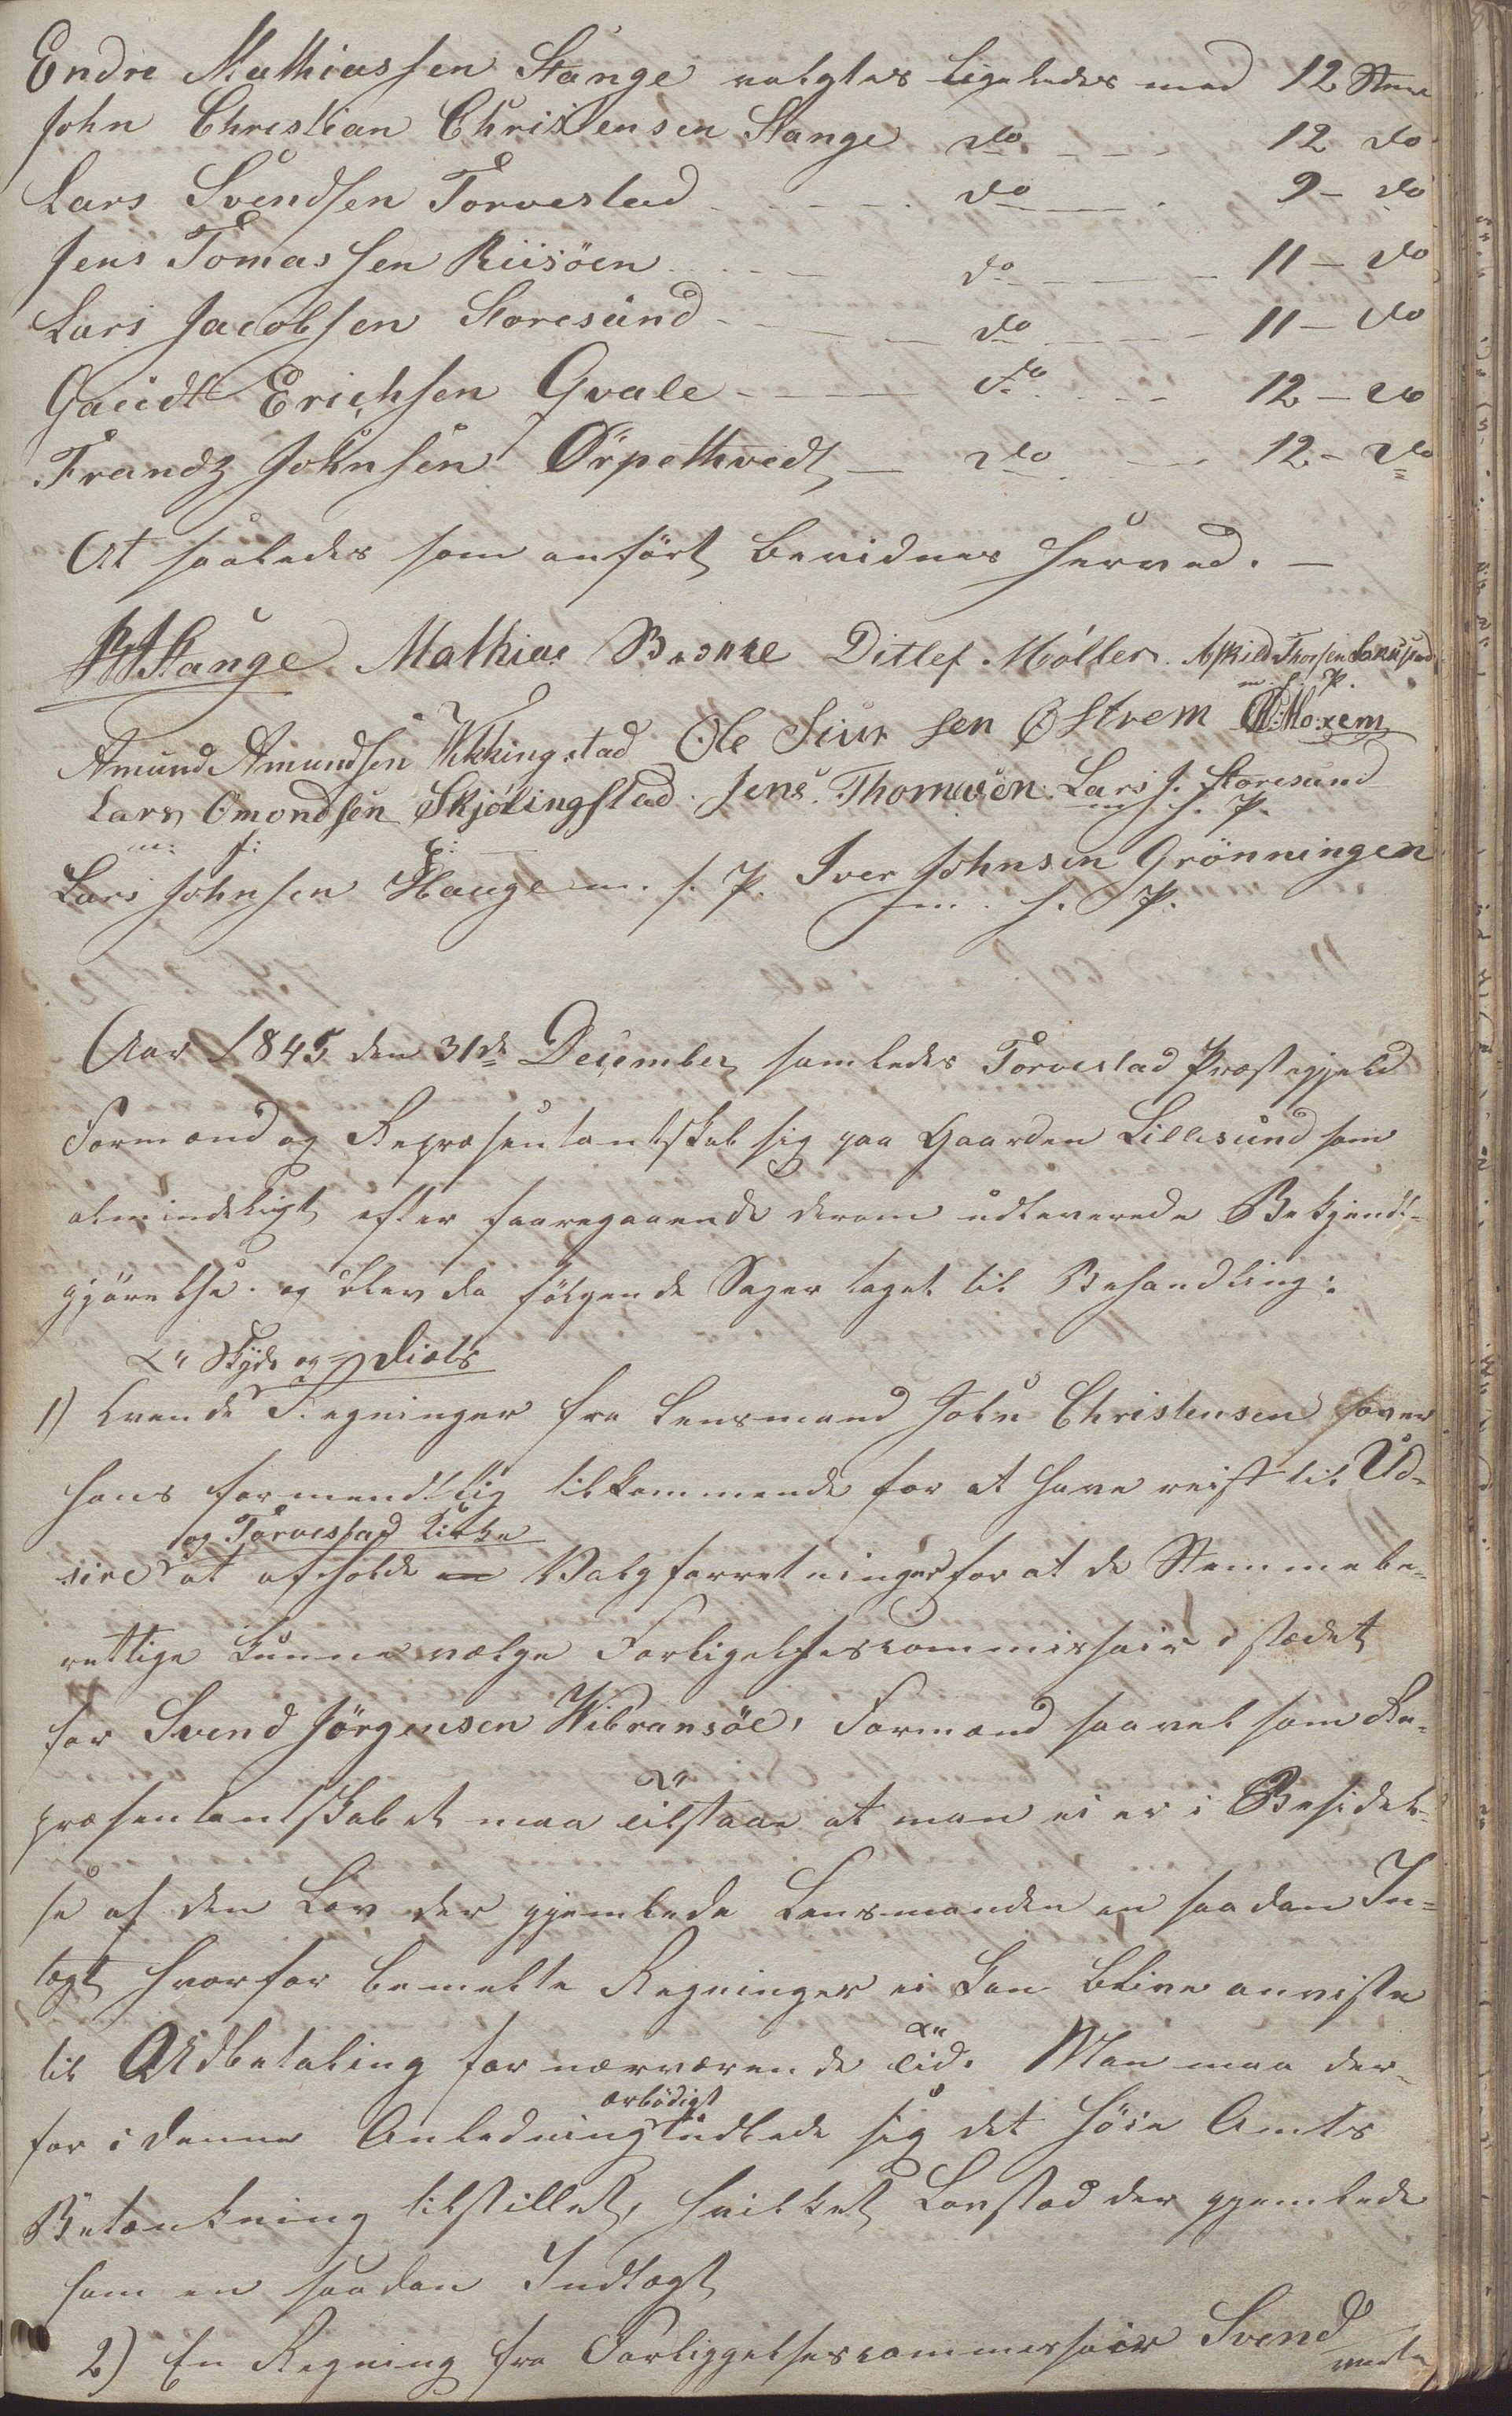 Endre Mathiassen Stange valgtes ligeledes med 12 Stmr
John Christian Christensen Stange do - - - 12 do
Lars Svendsen Torvestad - - - - . do - - . 9 - do
Jens Tomassen Riisöen . . - - do - - - 11 - do
Lars Jacobsen Storesund - - - - do - - - 11 - do
Gaudt Erichsen Qvale - - - - do . . - - 12 - do
Frandz Johnsen Örpethvedt - do . - - 12 - do
At saaledes som anfört bevidnes herved. -
Stange Mathias Ditlef Møller. Askild Thorsen
m. f. P.
Amund Amundsen Wikkingstad Ole Siur sen Østrem
Lars Omondsen Skjölingstad. Jens Thomassen. Lars J. Storesund
m. f: P: m. f. P.
Lars Johnsen Hauge m. f. P. Iver Johnsen Grönningen
m. f. P.
Aar 1845 den 31de December samledes Torvestad Præstegjeld
Formænd og Repræsentantskab sig paa Gaarden Lillesund som
almindeligt efter foregaaende derom udleverede Bekjendt-
gjörelse. og blev da fölgende Sager taget til Behandling:
Skyds og Diæts
1) Tvende Regninger fra Lensmand John Christensen over
hans formendtlig tilkommende for at have reist til Ud-
og Torvestad Kirke
sire at afholde Valgforretninger for at de Stemmebe-
rettige kunne vælge Forligelsescommissair i stædet
for Svend Jörgensen Wibransöe, Formænd saavel som Re-
præsentantskabet maa tilstaae at man ei er i Besidel-
se af den Lov der hjemlede Lensmanden en saadan In-
tægt hvorfor bemelte Regninger ei kan blive anviste
til Udbetaling for nærværende Tid. Man maa der-
ærbödigst
for i denne Anledning udbede sig det höie Amts
Betænkning tilstillet, hvilket Lovsted der hjemlede
ham en saadan Indtægt
2) En Regning fra Forliggelsescommersair Svend